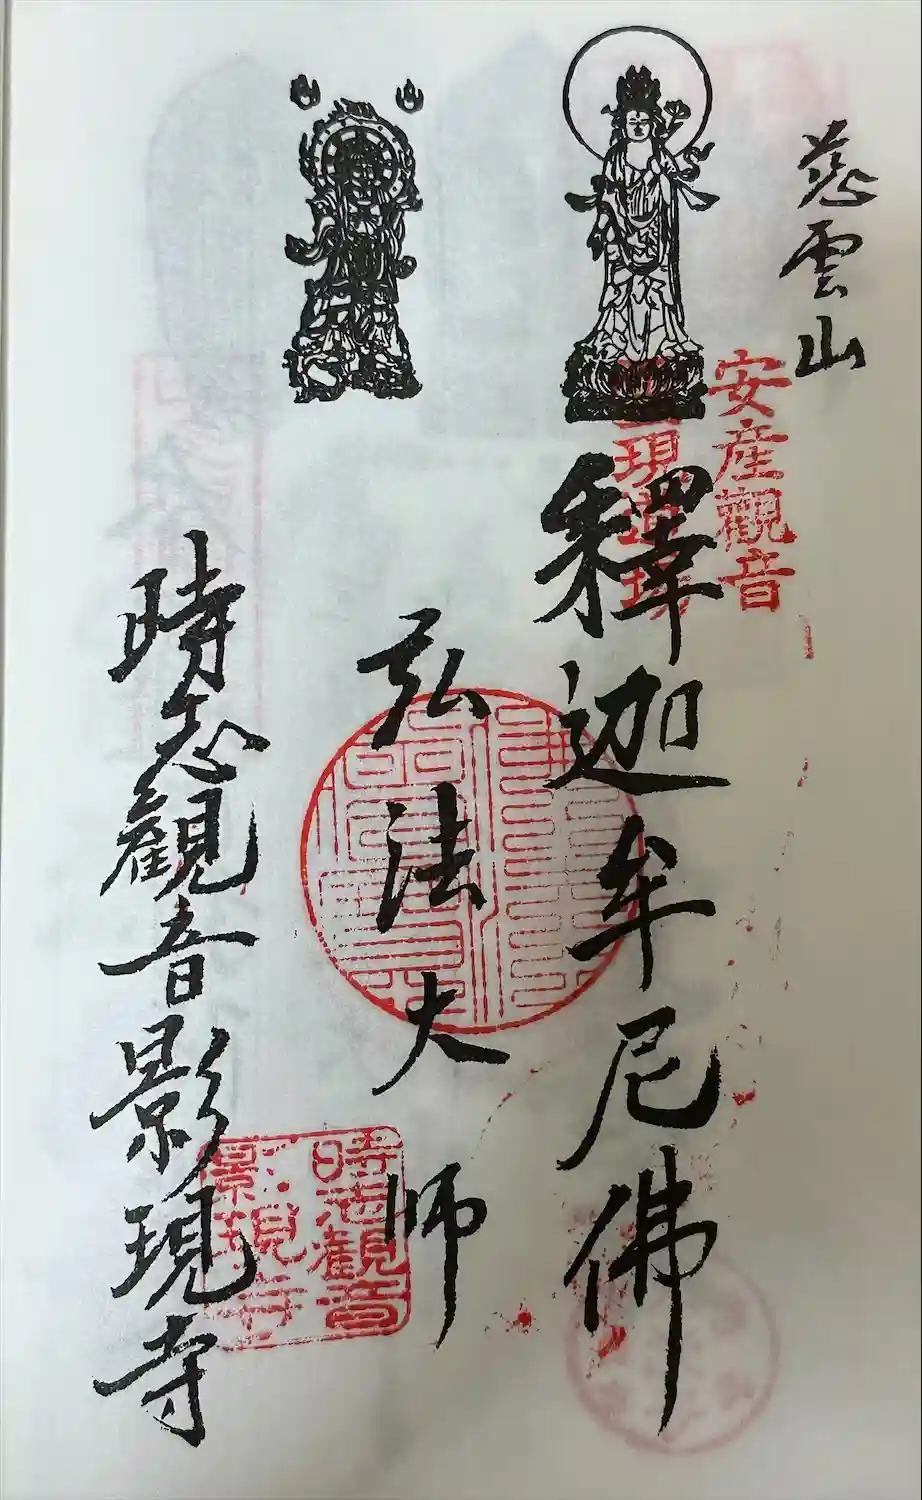 慈雲山
安産觀音
現道場
釋迦牟尼佛
弘法大師
時志觀音影現寺
時志觀音
影現寺